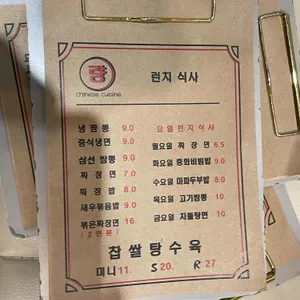 량
chinese cuisine
런치 식사
냉 짬 뽕 9.0
중식냉면 9.0
삼선 짬뽕 9.0
짜 장 면 7.0
짜 장 밥 8.0
새우볶음밥 9.0
볶은짜장면 16.
(2인분)
요일런치식사
월요일 짜 장 면 6.5
화요일 중화비빔밥 9.0
수요일 마파두부밥 8.0
목요일 고기짬뽕 10.
금요일 자돌탕면 10.
찹쌀탕수육
미니 11. S 20. R 27.